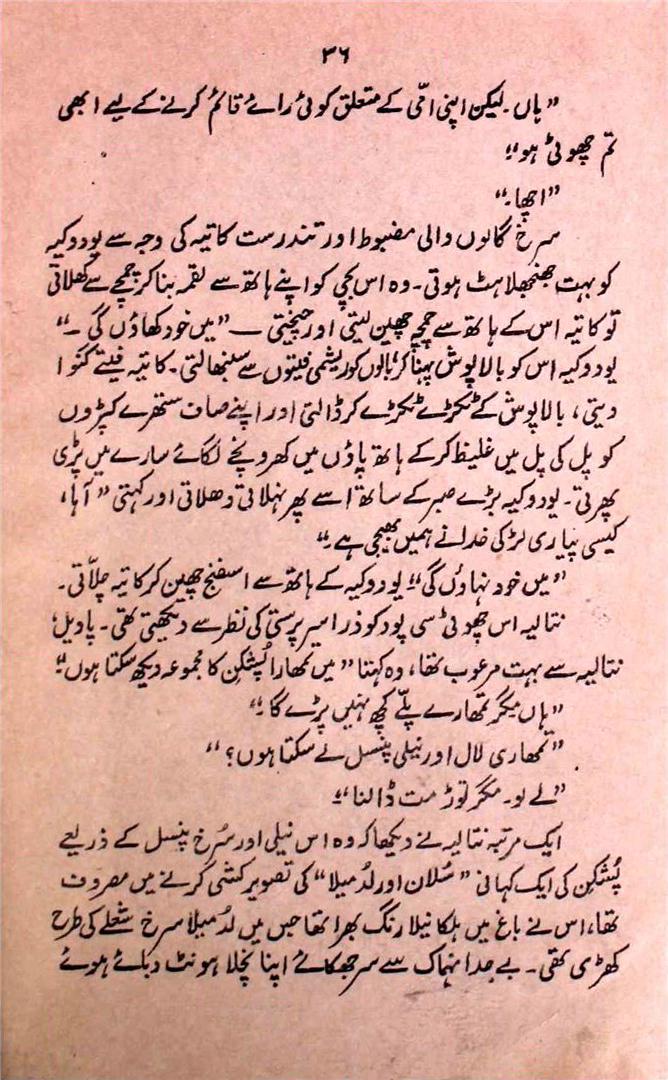 ۳۶
”ہاں۔ لیکن اپنی امّی کے متعلق کوئی رائے قائم کرنے کے لیے ابھی
تم چھوٹی ہو“۔
”اچھا۔“
سرخ گالوں والی مضبوط اور تندرست کاتیہ کی وجہ سے یودوکیہ
کو بہت جھنجھلاہٹ ہوتی۔ وہ اس بچی کو اپنے ہاتھ سے لقمہ بنا کر چمچے سے کھلاتی
تو کاتیہ اس کے ہاتھ سے چمچہ چھین لیتی اور چیختی — ”میں خود کھاؤں گی۔“
یودوکیہ اس کو بالاپوش پہنا کر بالوں کو ریشمی فیتوں سے سنبھالتی۔ کاتیہ فیتے گنوا
دیتی، بالاپوش کے ٹکڑے ٹکڑے کر ڈالتی اور اپنے صاف ستھرے کپڑوں
کو پل کی پل میں غلیظ کر کے ہاتھ پاؤں میں کھرونچے لگائے سارے میں پڑی
پھرتی۔ یودوکیہ بڑے صبر کے ساتھ اسے پھر نہلاتی دھلاتی اور کہتی ”آہا،
کیسی پیاری لڑکی خدا نے ہمیں بھیجی ہے۔“
”میں خود نہاؤں گی“ یودوکیہ کے ہاتھ سے اسفنج چھین کر کاتیہ چلّاتی۔
نتالیہ اس چھوٹی سی پود کو ذرا سرپرستی کی نظر سے دیکھتی تھی۔ پاویل
نتالیہ سے بہت مرعوب تھا، وہ کہتا ”میں تمھارا پُشکن کا مجموعہ دیکھ سکتا ہوں“
”ہاں مگر تمھارے پلّے کچھ نہیں پڑے گا۔“
”تمھاری لال اور نیلی پنسل لے سکتا ہوں؟“
”لے لو۔ مگر توڑ مت ڈالنا“۔
ایک مرتبہ نتالیہ نے دیکھا کہ وہ اس نیلی اور سُرخ پنسل کے ذریعے
پُشکن کی ایک کہانی ”سُلان اور لدمیلا“ کی تصویر کشی کرنے میں مصروف
تھا، اس نے باغ میں ہلکا نیلا رنگ بھرا تھا جس میں لدُمیلا سرخ شعلے کی طرح
کھڑی تھی۔ بے حد انہماک سے سر جھکائے اپنا نچلا ہونٹ دبائے ہوئے